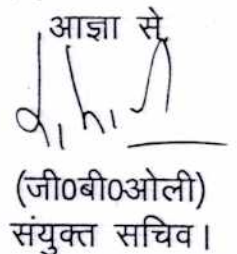 आज्ञा से,
(जी0बी0ओली)
संयुक्त सचिव।